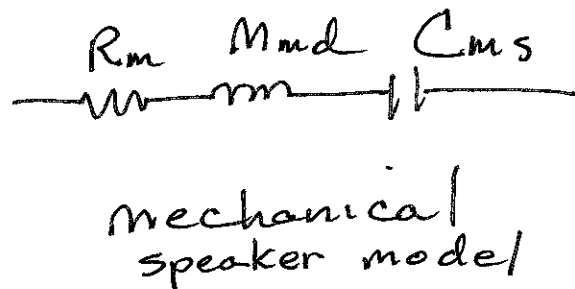 Rm Mmd Cms
mechanical
speaker model